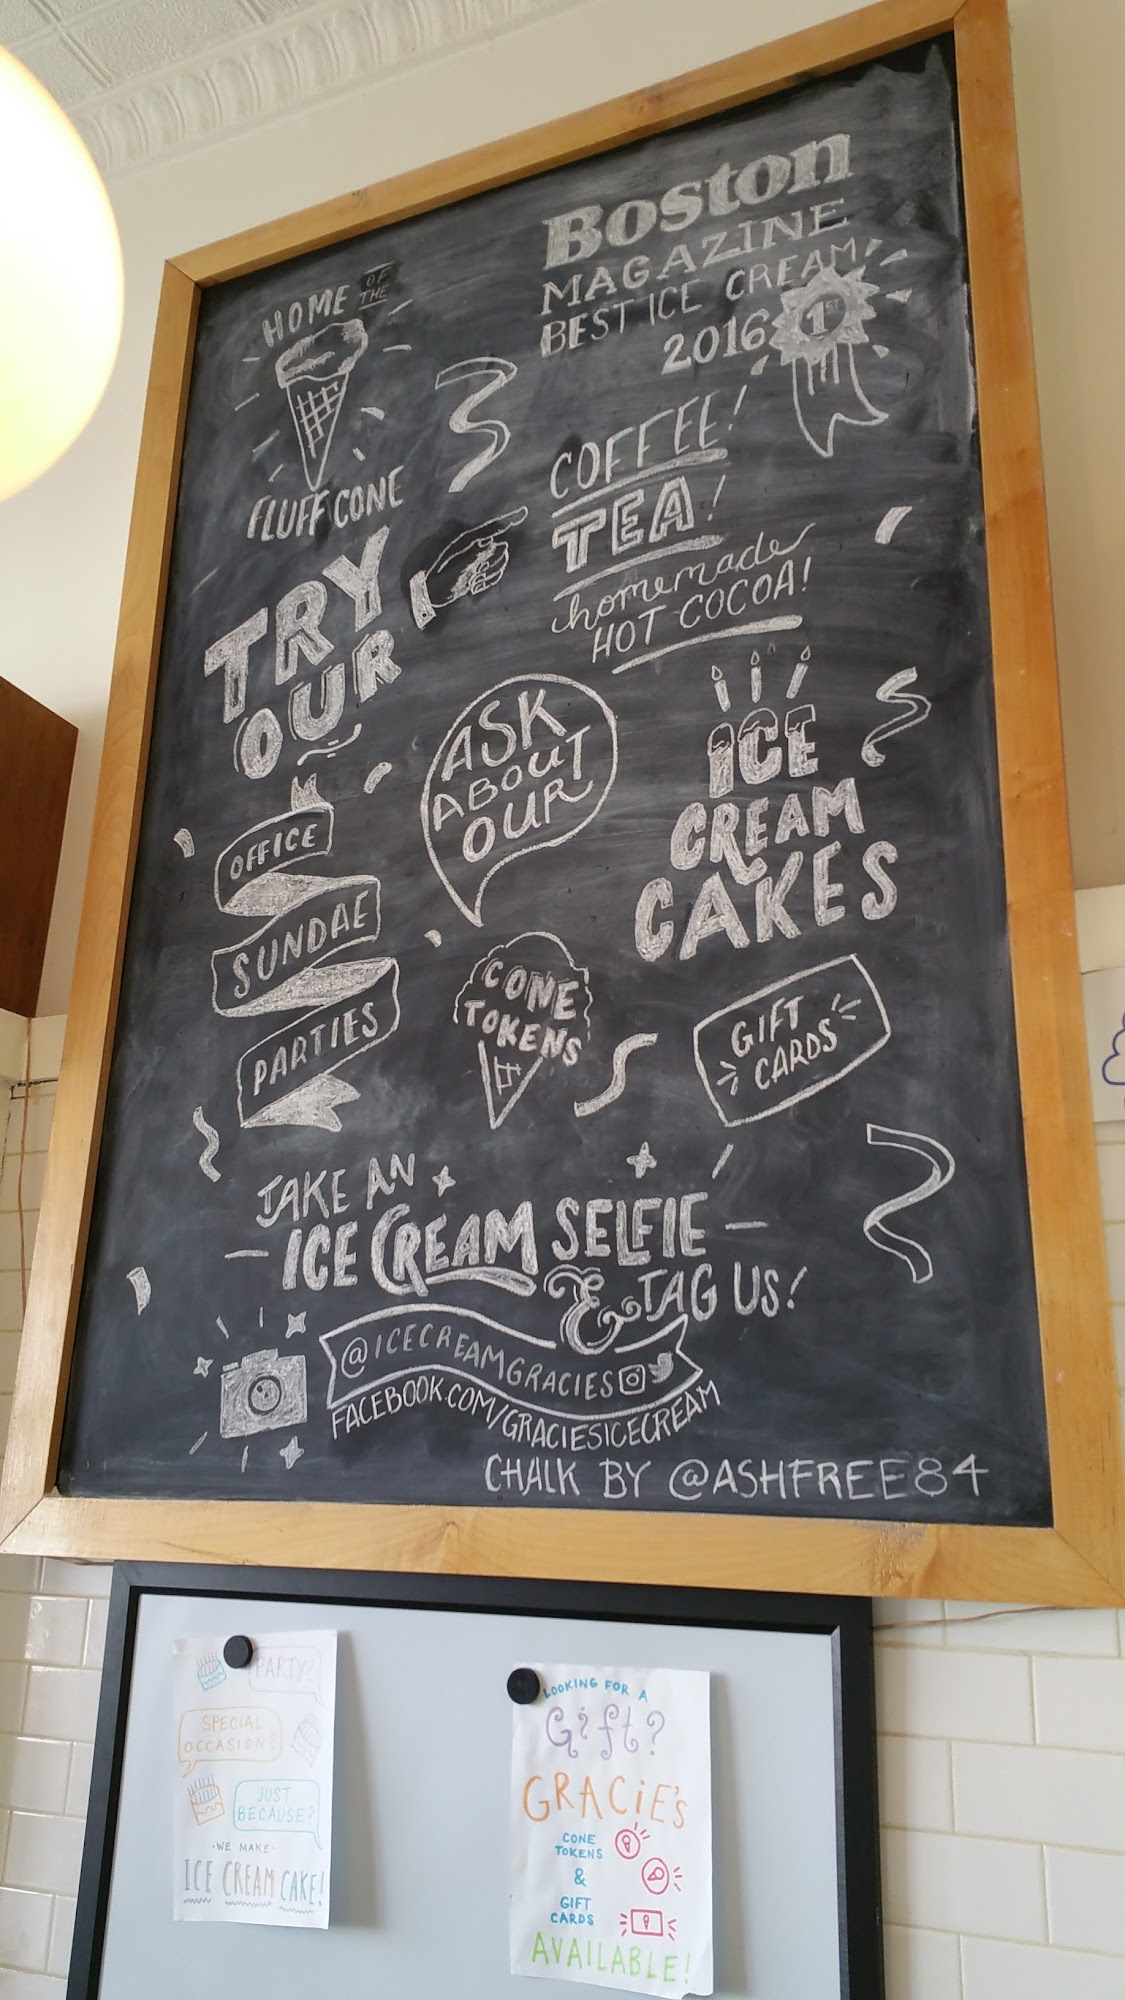 HOME OF THE
FLUFF CONE
Boston
MAGAZINE
BEST ICE CREAM
2016
1ST
TRY
OUR
COFFEE!
TEA!
homemade
HOT COCOA!
OFFICE
SUNDAE
PARTIES
ASK
ABOUT
OUR
ICE
CREAM
CAKES
CONE
TOKENS
GIFT
CARDS
TAKE AN
ICE CREAM SELFIE
& TAG US!
@ICECREAMGRACIES
FACEBOOK.COM/GRACIESICECREAM
CHALK BY @ASHFREE84
PARTY?
SPECIAL
OCCASION?
JUST
BECAUSE?
·WE MAKE·
ICE CREAM CAKE!
LOOKING FOR A
Gift?
GRACiE'S
CONE
TOKENS
&
GIFT
CARDS
AVAILABLE!